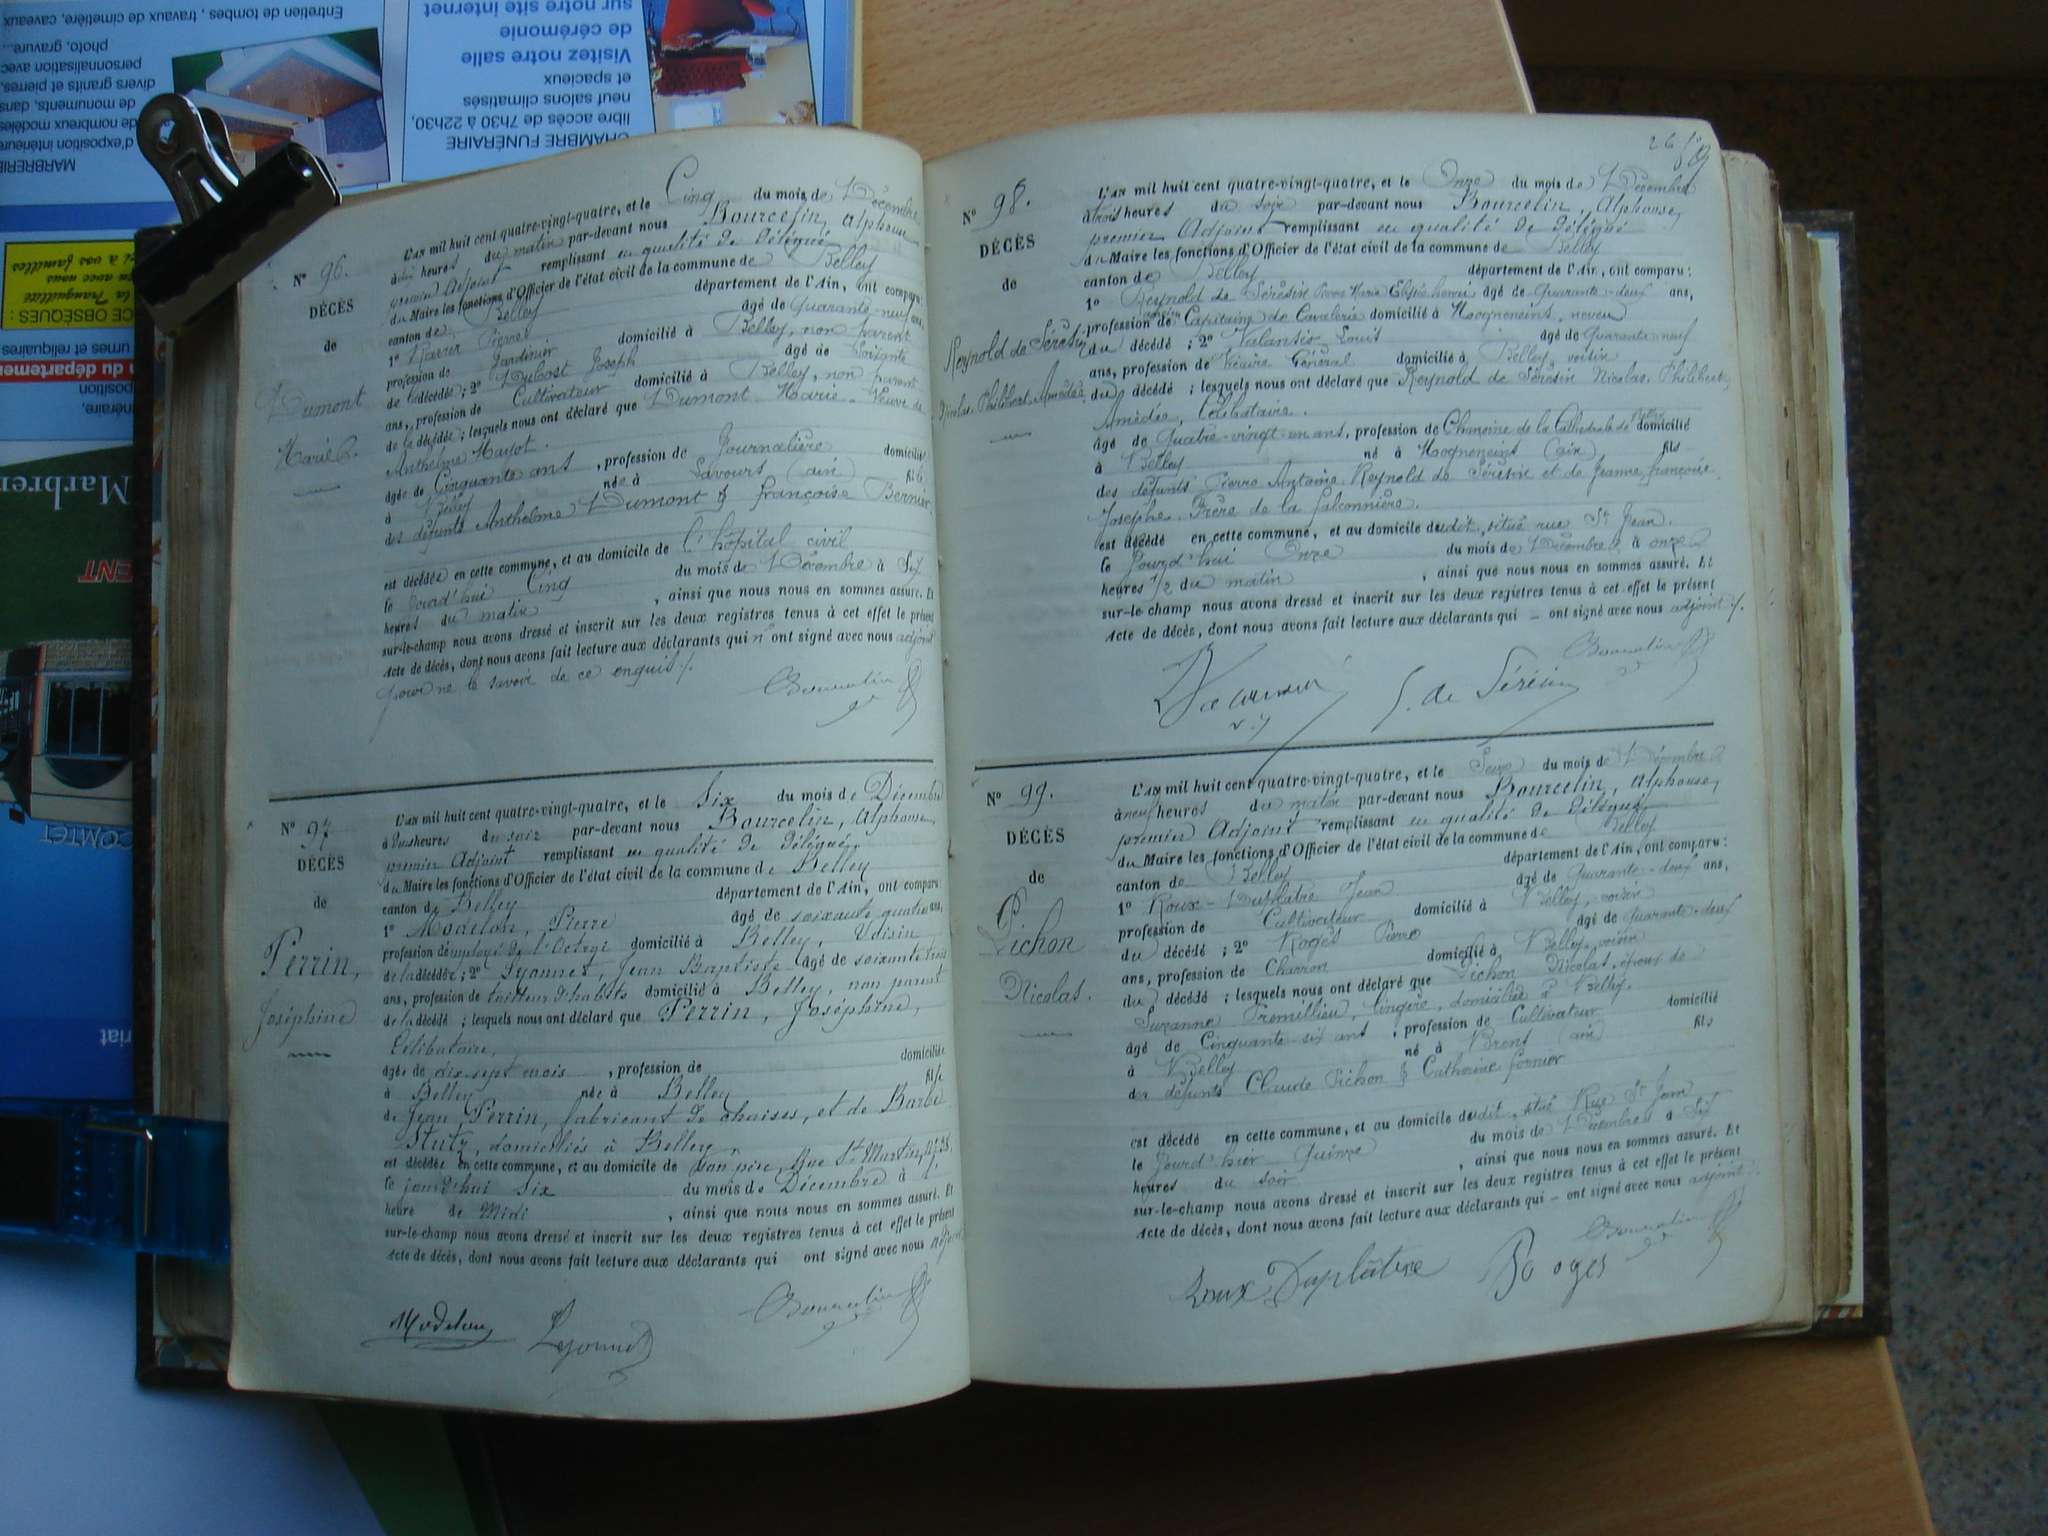 Nº 96.
DÉCÈS
de
Dumont
Marie
L'AN mil huit cent quatre-vingt-quatre, et le Cinq du mois de Décembre
à heures du matin par-devant nous Bourcelin, Alphonse
premier Adjoint remplissant en qualité de délégué
du Maire les fonctions d'Officier de l'état civil de la commune de Belley
canton de Belley département de l'Ain, ont comparu:
1º Pierre âgé de Quarante-neuf ans,
profession de Jardinier domicilié à Belley, non parent
de la décédée; 2º Dubost Joseph âgé de Soixante
ans, profession de Cultivateur domicilié à Belley, non parent
de la décédée; lesquels nous ont déclaré que Dumont Marie Veuve de
Anthelme
âgée de Cinquante ans, profession de Journalière domiciliée
à Belley née à Lavours (ain) fille
des défunts Anthelme Dumont & françoise Bernier
est décédée en cette commune, et au domicile de l'hôpital civil
le Jourd'hui Cinq du mois de Décembre à Six
heures du matin, ainsi que nous nous en sommes assuré. Et
sur-le-champ nous avons dressé et inscrit sur les deux registres tenus à cet effet le présent
Acte de décès, dont nous avons fait lecture aux déclarants qui n'ont signé avec nous adjoint
pour ne le savoir de ce enquis ./.
Nº 97
DÉCÈS
de
Perrin,
Joséphine
L'AN mil huit cent quatre-vingt-quatre, et le Six du mois de Décembre
à heures du soir par-devant nous Bourcelin, Alphonse,
premier Adjoint remplissant en qualité de délégué,
du Maire les fonctions d'Officier de l'état civil de la commune de Belley
canton de Belley département de l'Ain, ont comparu:
1º Modelon, Pierre âgé de soixante quatre ans,
profession d'employé de l'Octroi domicilié à Belley, Voisin
de la décédée; 2º Lyonnet, Jean Baptiste âgé de soixante trois
ans, profession de tailleur d'habits domicilié à Belley, non parent
de la décédée; lesquels nous ont déclaré que Perrin, Joséphine,
Célibataire,
âgée de dix sept mois, profession de domiciliée
à Belley née à Belley fille
de Jean Perrin, fabricant de chaises, et de Barbe
Stutz, domiciliés à Belley,
est décédée en cette commune, et au domicile de son père, Rue St Martin, Nº 25,
le jourd'hui six du mois de Décembre à l'
heure de Midi, ainsi que nous nous en sommes assuré. Et
sur-le-champ nous avons dressé et inscrit sur les deux registres tenus à cet effet le présent
Acte de décès, dont nous avons fait lecture aux déclarants qui ont signé avec nous adjoint
Modelon Lyonnet
Nº 98.
DÉCÈS
de
Reynold de Sérésin
Nicolas Philibert Amédée
L'AN mil huit cent quatre-vingt-quatre, et le Onze du mois de Décembre
à trois heures du soir par-devant nous Bourcelin, Alphonse,
premier Adjoint remplissant en qualité de délégué
du Maire les fonctions d'Officier de l'état civil de la commune de Belley
canton de Belley département de l'Ain, ont comparu:
1º Reynold de Sérésin Marie âgé de Quarante-deux ans,
profession de Capitaine de Cavalerie domicilié à Mogneneins, neveu
du décédé; 2º Valansio Louis âgé de Quarante neuf
ans, profession de Vicaire Général domicilié à Belley, voisin
du décédé; lesquels nous ont déclaré que Reynold de Sérésin Nicolas, Philibert,
Amédée, Célibataire.
âgé de Quatre-vingt-un ans, profession de Chanoine de la Cathédrale de Belley domicilié
à Belley né à Mogneneins (ain) fils
des défunts Pierre Antoine Reynold de Sérésin et de Jeanne, françoise
Josephe Frère de la falconnière.
est décédé en cette commune, et au domicile dudit, situé rue St Jean.
le Jourd'hui Onze du mois de Décembre à onze
heures 1/2 du matin, ainsi que nous nous en sommes assuré. Et
sur-le-champ nous avons dressé et inscrit sur les deux registres tenus à cet effet le présent
Acte de décès, dont nous avons fait lecture aux déclarants qui – ont signé avec nous adjoint ./.
de Sérésin
Nº 99.
DÉCÈS
de
Pichon
Nicolas.
L'AN mil huit cent quatre-vingt-quatre, et le Seize du mois de Décembre
à neuf heures du matin par-devant nous Bourcelin, Alphonse,
premier Adjoint remplissant en qualité de délégué
du Maire les fonctions d'Officier de l'état civil de la commune de Belley
canton de Belley département de l'Ain, ont comparu:
1º Roux-Duplatre Jean âgé de Quarante-deux ans,
profession de Cultivateur domicilié à Belley, voisin
du décédé; 2º Roges Pierre âgé de Quarante-deux
ans, profession de Charron domicilié à Belley, voisin
du décédé; lesquels nous ont déclaré que Pichon Nicolas, époux de
Suzanne Tremillieu, lingère, domiciliée à Belley.
âgé de Cinquante-six ans, profession de Cultivateur domicilié
à Belley né à Brens (ain) fils
des défunts Claude Pichon & Catherine fornier
est décédé en cette commune, et au domicile dudit, situé Rue St Jean
le Jourd'hier Quinze du mois de Décembre à Six
heures du soir, ainsi que nous nous en sommes assuré. Et
sur-le-champ nous avons dressé et inscrit sur les deux registres tenus à cet effet le présent
Acte de décès, dont nous avons fait lecture aux déclarants qui – ont signé avec nous adjoint.
Roux Duplâtre Roges
CHAMBRE FUNÉRAIRE
libre accès de 7h30 à 22h30,
neuf salons climatisés
et spacieux
Visitez notre salle
de cérémonie
sur notre site internet
MARBRERIE
d'exposition intérieure
de nombreux modèles
de monuments, dans
divers granits et pierres,
personnalisation avec
photo, gravure...
Entretien de tombes, travaux de cimetière, caveaux
CE OBSÈQUES :
la Tranquillité
avec nous
et à vos familles
urnes et reliquaires
du département
Marbrer
COMTET